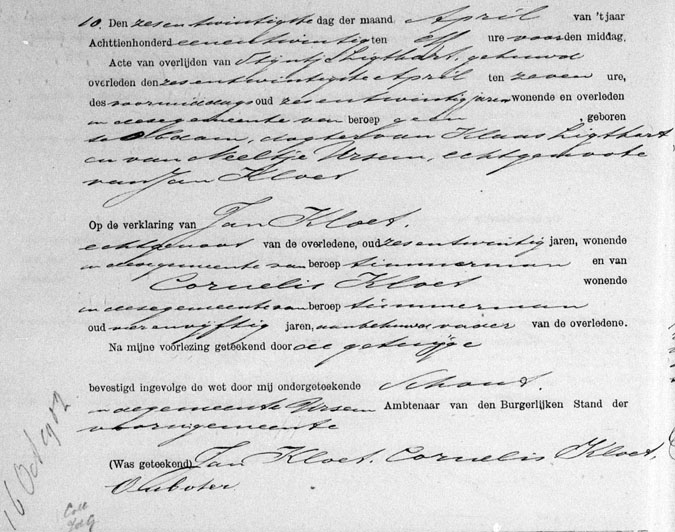 10. Den zesentwintigste dag der maand April van 't jaar
Achttienhonderd eenentwintig ten elf ure voor den middag,
Acte van overlijden van Stijntje Ligthart, gehuwd
overleden den zesentwintigste April ten zeven ure,
des voormiddags oud zesentwintig jaren wonende en overleden
in deze gemeente van beroep geen , geboren
te Obdam, dogter van Klaas Ligthart
en van Neeltje Ursem, echtgenoote
van Jan Kloet
Op de verklaring van Jan Kloet,
echtgenoot van de overledene, oud zesentwintig jaren, wonende
in deze gemeente van beroep timmerman en van
Cornelis Kloet wonende
in deze gemeente van beroep timmerman
oud vierenvijftig jaren, aanbehuwd vader van de overledene.
Na mijne voorlezing geteekend door de getuige
bevestigd ingevolge de wet door mij ondergeteekende Schout
in de gemeente Ursem Ambtenaar van den Burgerlijken Stand der
voorn. gemeente
(Was geteekend) Jan Kloet. Cornelis Kloet.
16 Oct 1912